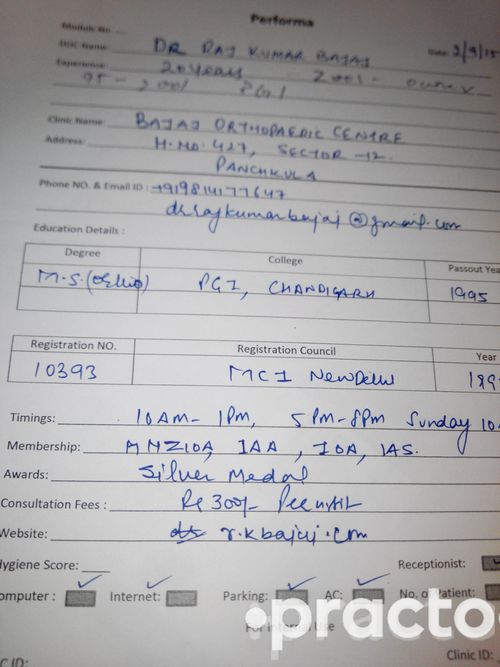 Performa
Module No.
DOC Name: DR RAJ KUMAR BAJAJ Date: 2/9/15
Experience: 20 Years 2001 - owner
95 - 2001 PGI
Clinic Name: BAJAJ ORTHOPAEDIC CENTRE
Address: H.NO. 427, SECTOR -12.
PANCHKULA
Phone NO. & Email ID: +919814177647
drrajkumarbajaj@gmail.com
Education Details :
Degree College Passout Yea
M.S.(ortho) PGI, CHANDIGARH 1995
Registration NO. Registration Council Year
10393 MCI New Delhi 199
Timings: 10AM- 1PM, 5PM-8PM Sunday 10
Membership: IAA, IOA, IAS.
Awards: Silver Medal
Consultation Fees : Rs 300/- Per visit
Website: r.kbajaj.com
Hygiene Score: Receptionist:
omputer : Internet: Parking: AC: No. of Patient:
For Internal Use
practo
C ID: Clinic ID: